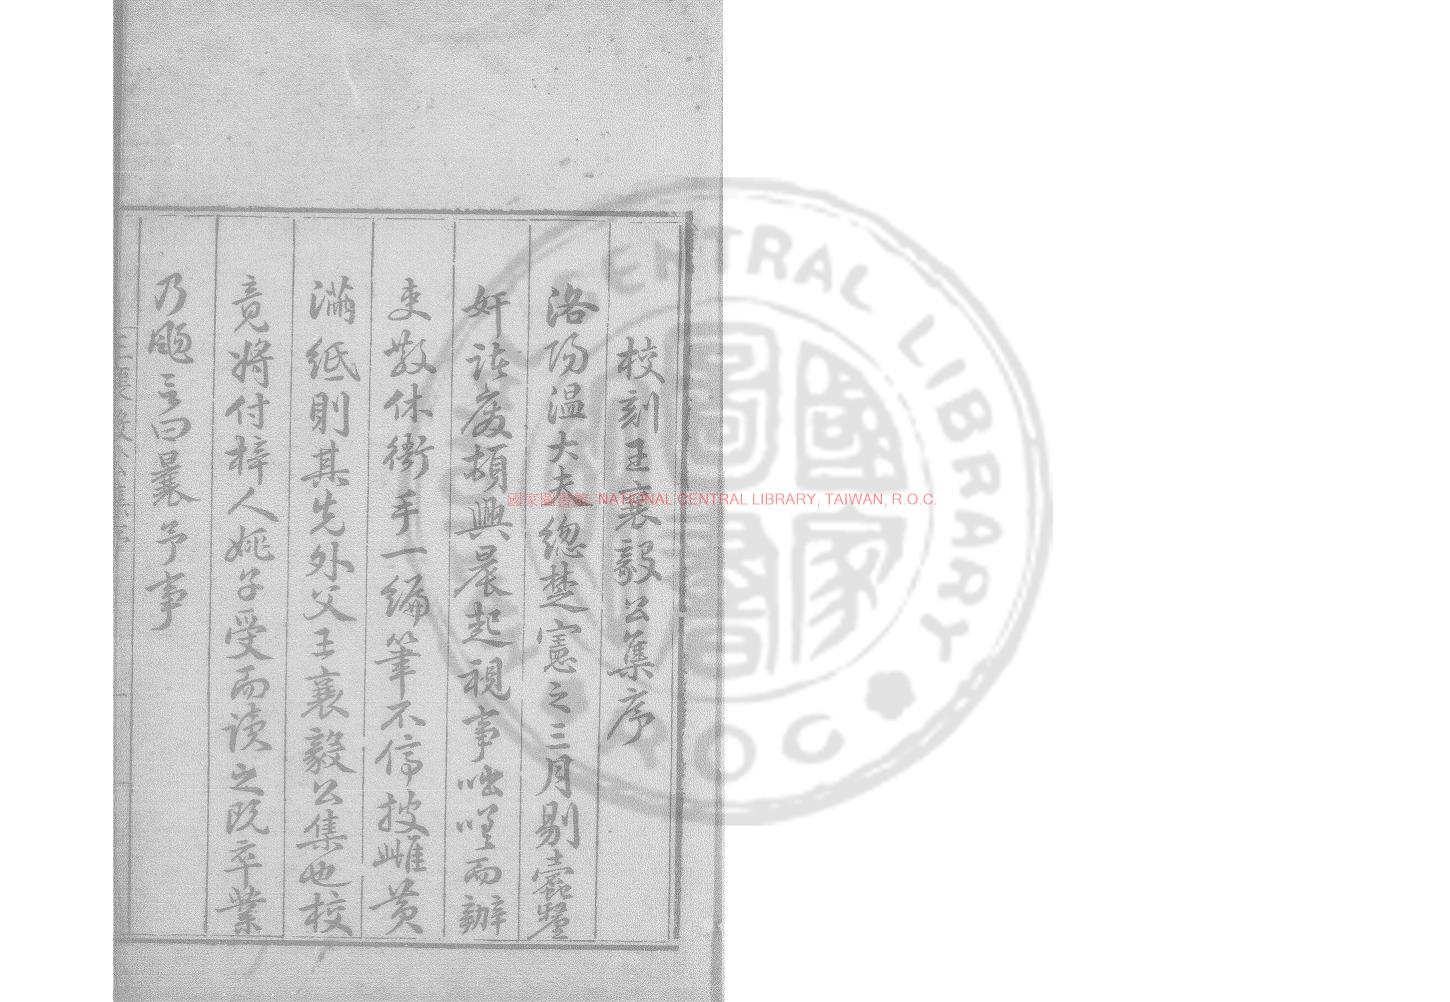 校刻王襄毅公集序
洛陽温大夫總楚憲之三月剔蠹釐
奸詰廢頓興晨起視事咄嗟而辦
吏散休衙手一編筆不停披雌黄
滿紙則其先外父王襄毅公集也校
竟將付梓人姚子受而读之既卒業
乃颺言曰曩予事
王襄毅公集序
國家圖書館, NATIONAL CENTRAL LIBRARY, TAIWAN, R.O.C.
CENTRAL LIBRARY
R.O.C.